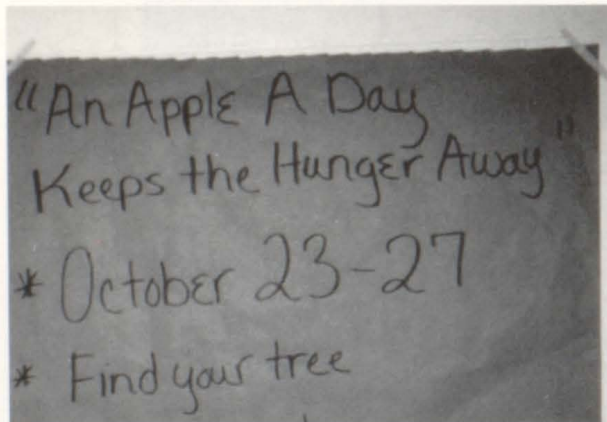 "An Apple A Day
Keeps the Hunger Away"
* October 23-27
* Find your tree